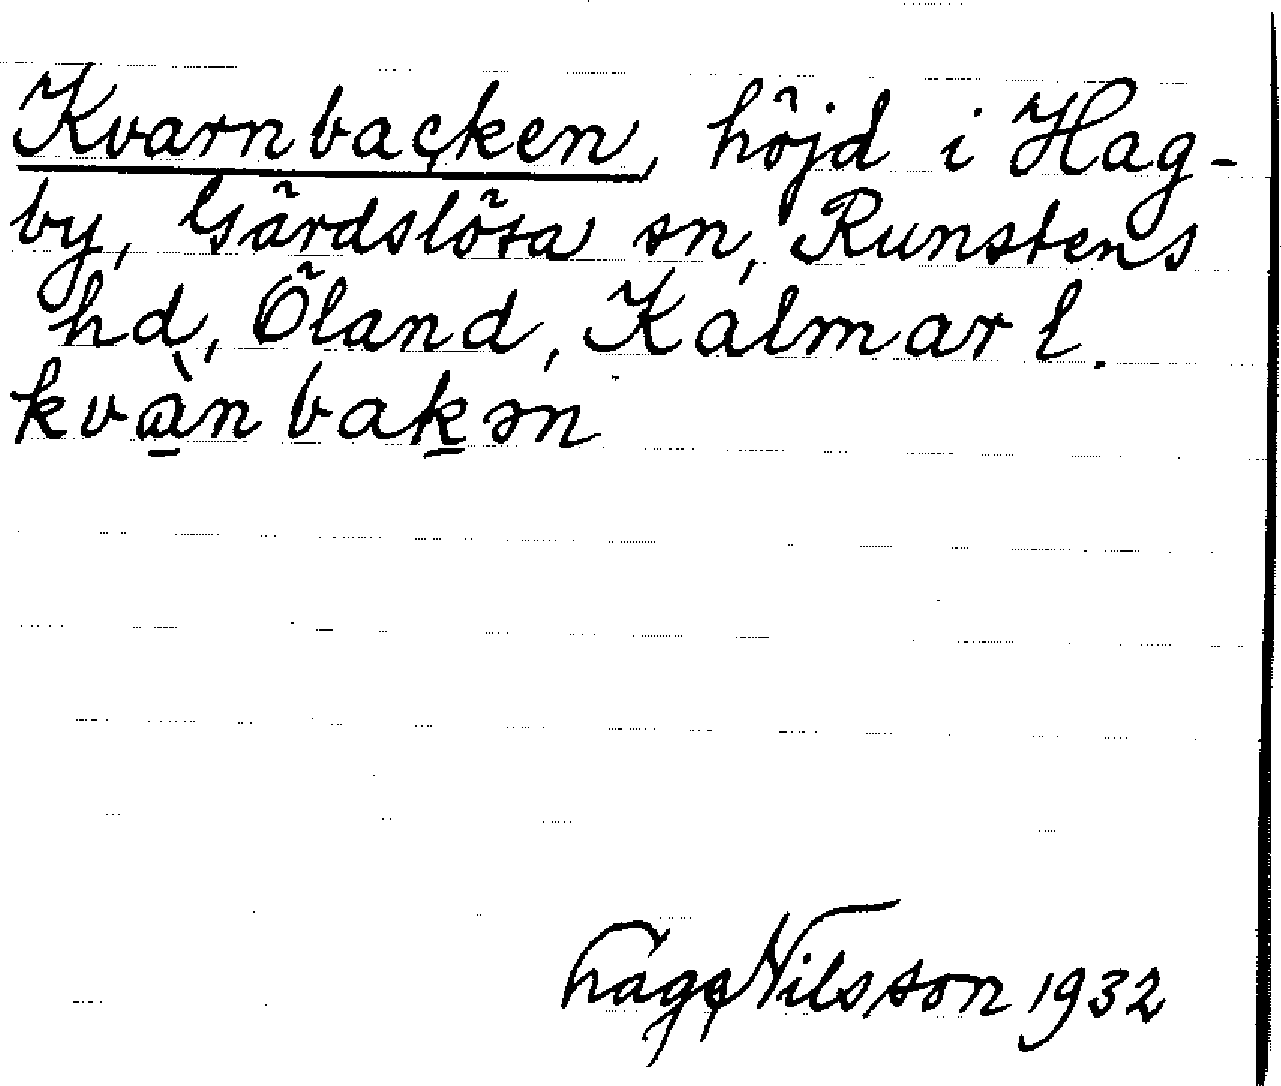 Kvarnbacken, höjd i Hag-
by, Gärdslösa sn, Runstens
hd, Öland, Kalmar l.
kvàn bakən
Nilsson 1932